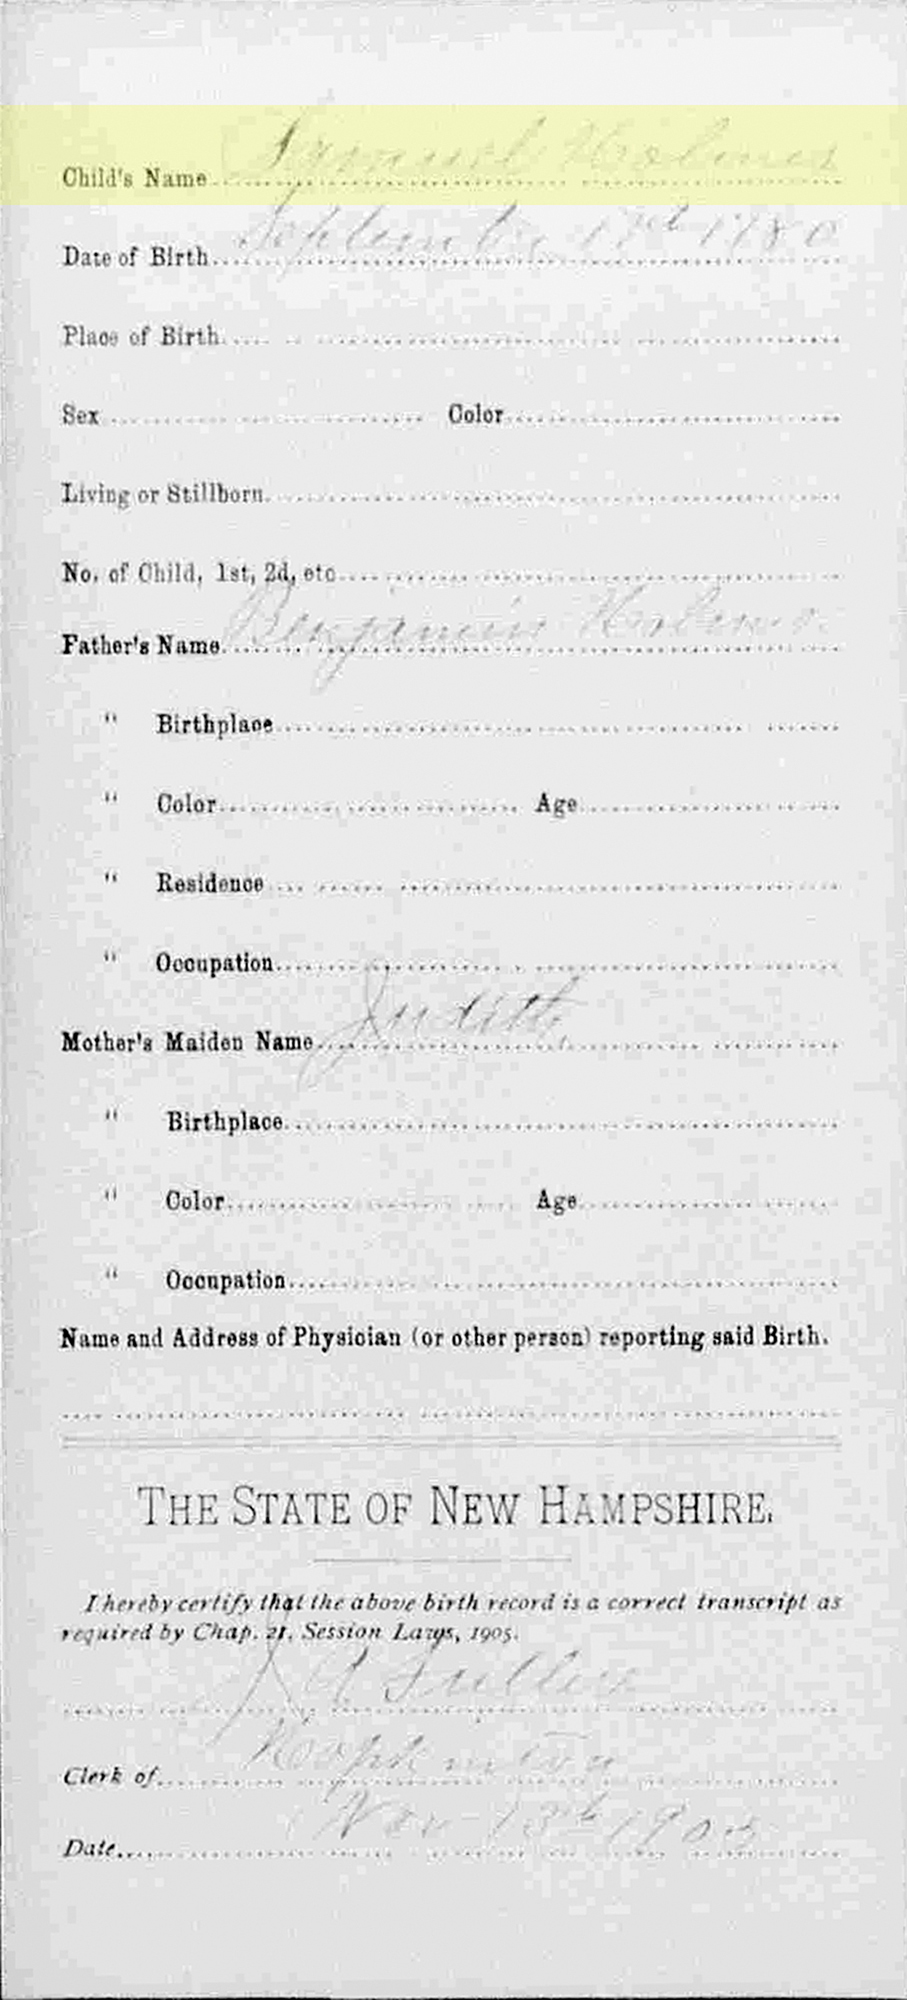 Child's Name Samuel Holmes
Date of Birth September 17th 1780
Place of Birth
Sex Color
Living or Stillborn
No. of Child, 1st, 2d, etc
Father's Name Benjamin Holmes
" Birthplace
" Color Age
" Residence
" Occupation
Mother's Maiden Name Judith
" Birthplace
" Color Age
" Occupation
Name and Address of Physician (or other person) reporting said Birth.
THE STATE OF NEW HAMPSHIRE.
I hereby certify that the above birth record is a correct transcript as
required by Chap. 21, Session Laws, 1905.
Clerk of Hopkinton
Date Nov 13th 1905